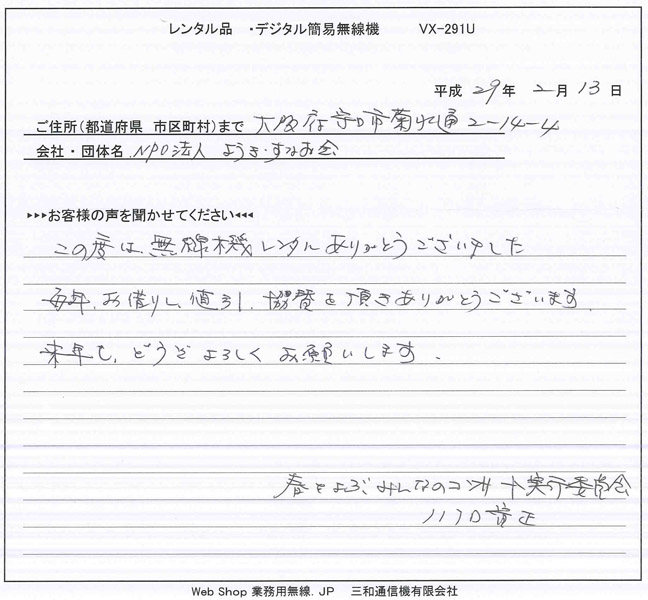 レンタル品 ・デジタル簡易無線機 VX-291U
平成 29年 2月 13日
ご住所(都道府県 市区町村)まで 大阪府守口市菊水通2-14-4
会社・団体名 NPO法人 ようき・すなお会
▸▸▸お客様の声を聞かせてください◂◂◂
この度は、無線機レンタルありがとうございました
毎年、お借りし、値引、協賛を頂きありがとうございます.
来年も、どうぞよろしくお願いします.
春をよぶみんなのコンサート実行委員会
川口
Web Shop 業務用無線.JP 三和通信機有限会社